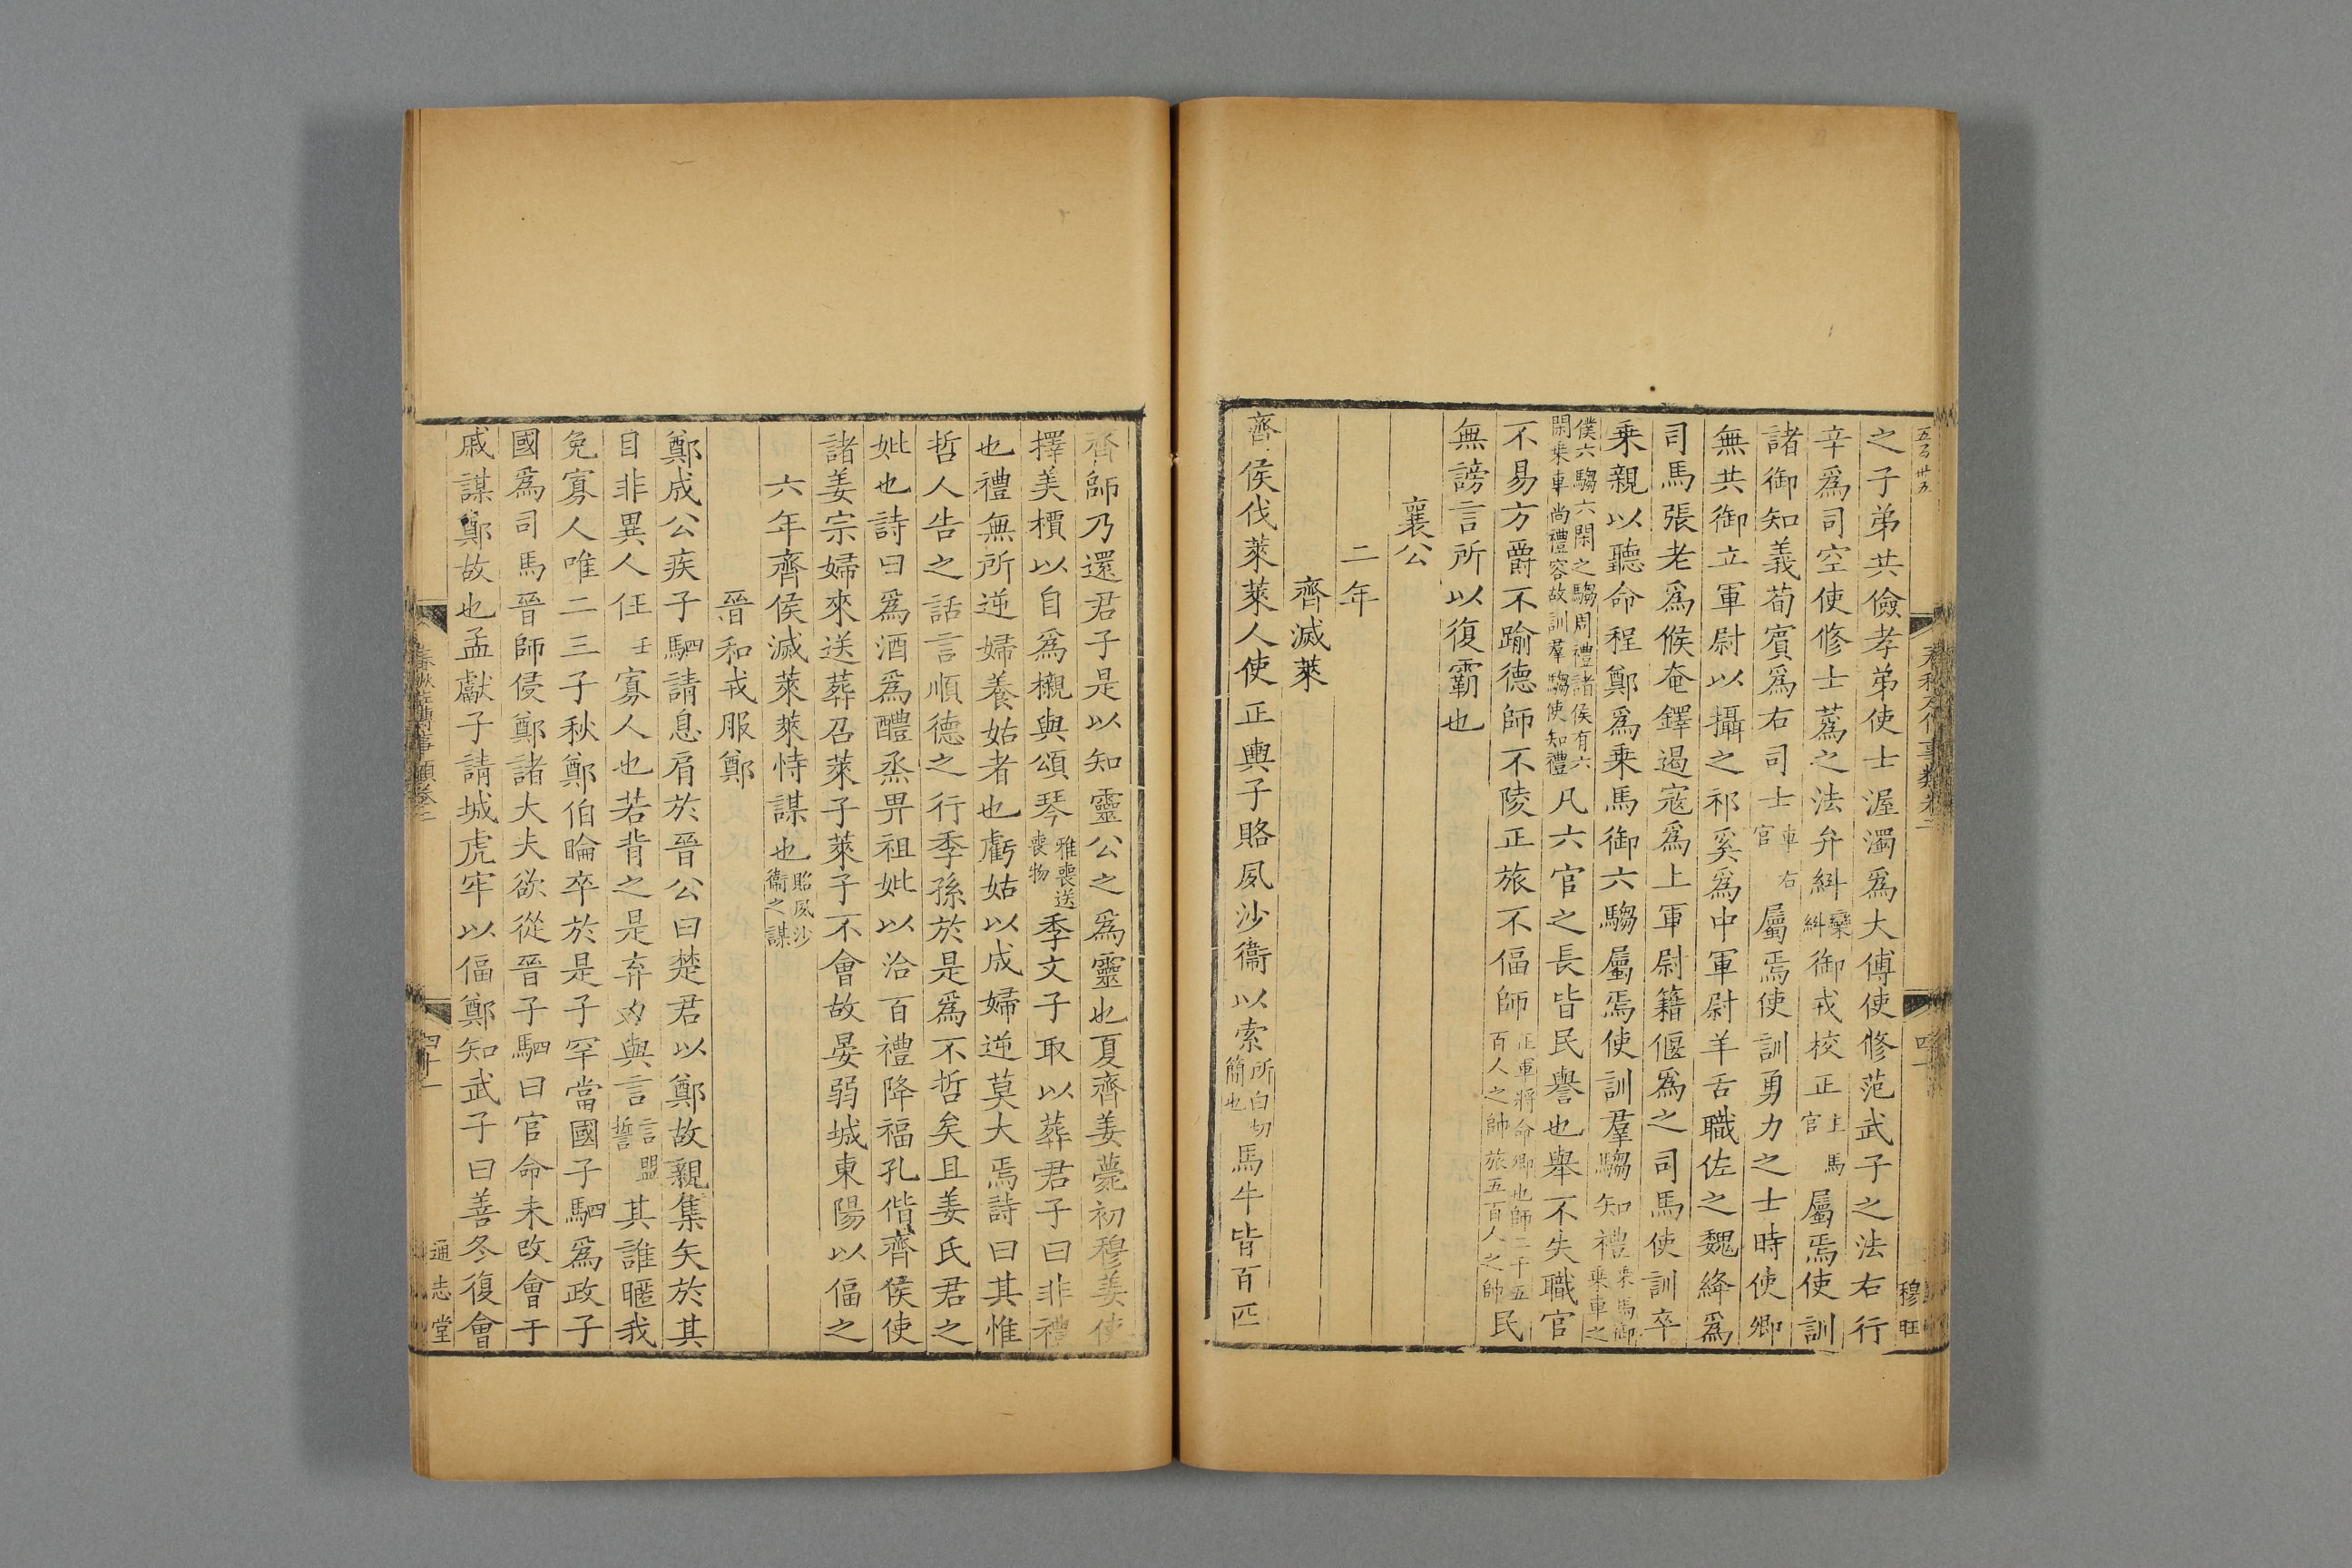 之子弟共儉孝弟使士渥濁爲大傅使修范武子之法右行
辛爲司空使修士蔿之法弁糾欒糾御戎校正主馬官屬焉使訓
諸御知義荀賓爲右司士車右官屬焉使訓勇力之士時使卿
無共御立軍尉以攝之祁奚爲中軍尉羊舌職佐之魏絳爲
司馬張老爲候奄鐸遏寇爲上軍尉籍偃爲之司馬使訓卒
乘親以聽命程鄭爲乘馬御六騶屬焉使訓羣騶知禮乘馬御乘車之
僕六騶六閑之騶周禮諸侯有六閑乗車尚禮容故訓羣騶使知禮凡六官之長皆民譽也舉不失職官
不易方爵不踰德師不陵正旅不偪師正軍將命卿也師二千五百人之帥旅五百人之帥民
無謗言所以復霸也
襄公
二年
齊滅萊
齊侯伐萊萊人使正輿子賂夙沙衞以索所白切簡也馬牛皆百匹
齊師乃還君子是以知靈公之爲靈也夏齊姜薨初穆姜使
擇美檟以自爲櫬與頌琴雅喪送喪物季文子取以葬君子曰非禮
也禮無所逆婦養姑者也虧姑以成婦逆莫大焉詩曰其惟
哲人告之話言順德之行季孫於是爲不哲矣且姜氏君之
妣也詩曰爲酒爲醴烝畀祖妣以洽百禮降福孔偕齊侯使
諸姜宗婦來送葬召萊子萊子不會故晏弱城東陽以偪之
六年齊侯滅萊萊恃謀也賂夙沙衞之謀
晉和戎服鄭
鄭成公疾子駟請息肩於晉公曰楚君以鄭故親集矢於其
目非異人任壬寡人也若背之是弃力與言言盟誓其誰暱我
免寡人唯二三子秋鄭伯睔卒於是子罕當國子駟爲政子
國爲司馬晉師侵鄭諸大夫欲從晉子駟曰官命未改會于
戚謀鄭故也孟獻子請城虎牢以偪鄭知武子曰善冬復會
春秋左傳事類卷三
四十一
通志堂
穆旺